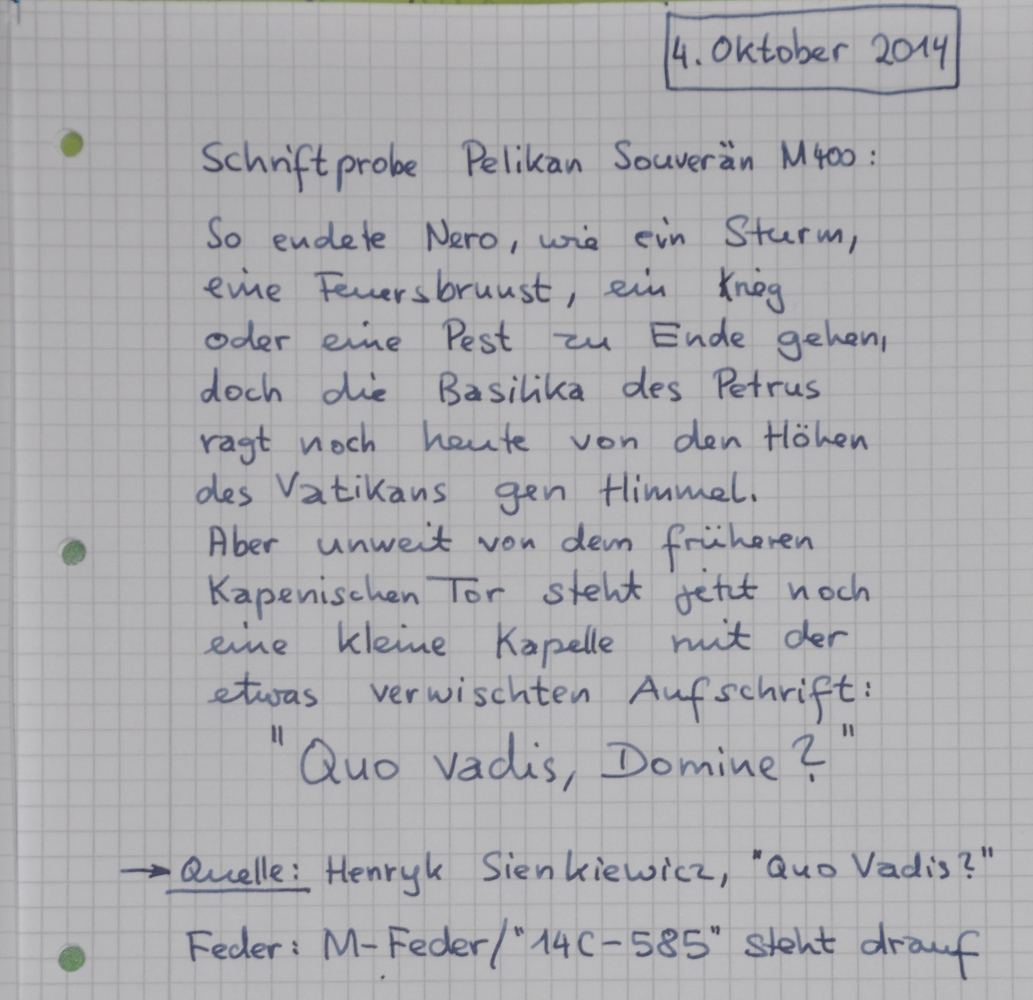 4. Oktober 2014
Schriftprobe Pelikan Souverän M400:
So endete Nero, wie ein Sturm,
eine Feuersbrunst, ein Krieg
oder eine Pest zu Ende gehen,
doch die Basilika des Petrus
ragt noch heute von den Höhen
des Vatikans gen Himmel.
Aber unweit von dem früheren
Kapenischen Tor steht jetzt noch
eine kleine Kapelle mit der
etwas verwischten Aufschrift:
"Quo vadis, Domine?"
→ Quelle: Henryk Sienkiewicz, "Quo Vadis?"
Feder: M-Feder/"14C-585" steht drauf